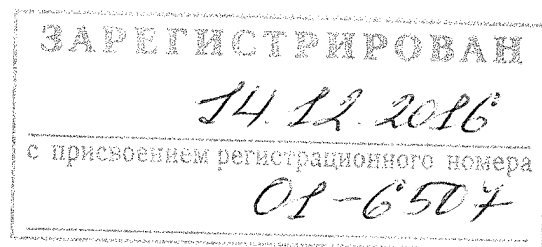 ЗАРЕГИСТРИРОВАН
14.12.2016
с присвоением регистрационного номера
01-6507